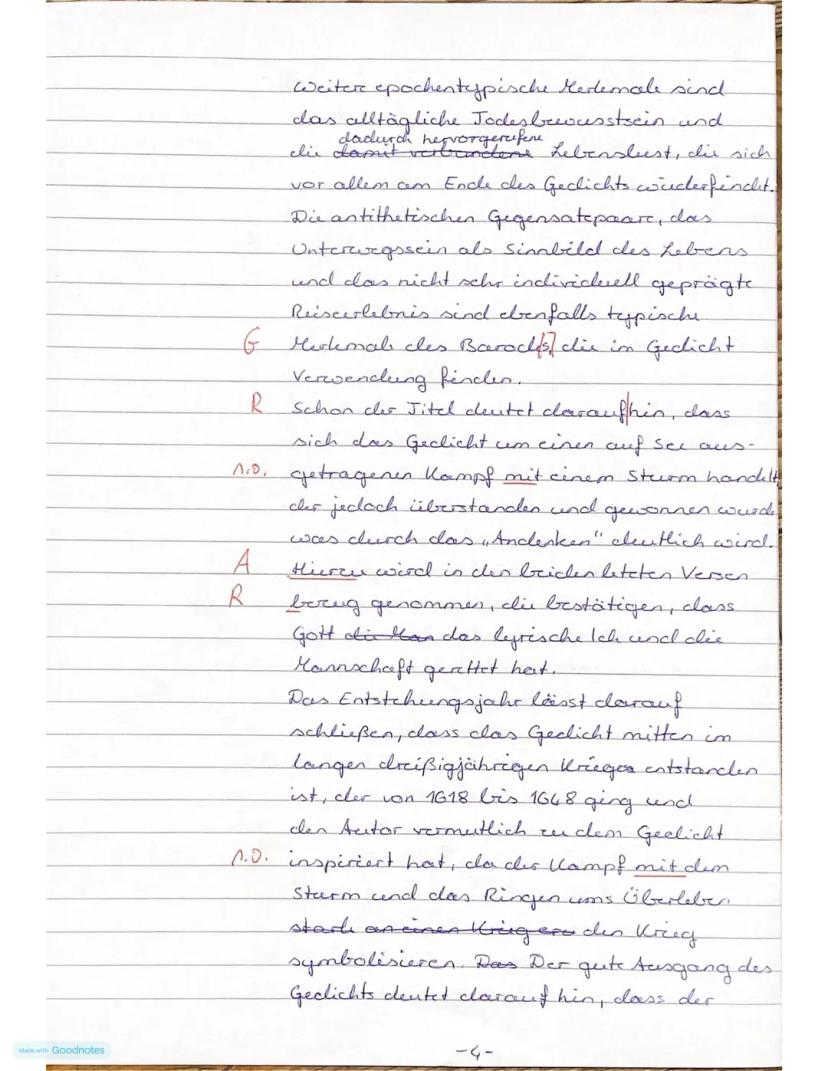 Weitere epochentypische Merkmale sind
das alltägliche Todesbewusstsein und
dadurch hervorgerufene
die damit verbundene Lebenslust, die sich
vor allem am Ende des Gedichts wiederfindet.
Die antithetischen Gegensatzpaare, das
Unterwegssein als Sinnbild des Lebens
und das nicht sehr individuell geprägte
Reiseerlebnis sind ebenfalls typische
G Merkmale des Barock[s,] die im Gedicht
Verwendung finden.
R Schon der Titel deutet darauf|hin, dass
sich das Gedicht um einen auf See aus-
s.o. getragenen Kampf mit einem Sturm handelt
der jedoch überstanden und gewonnen wurde
was durch das „Andenken" deutlich wird.
A Hierzu wird in den beiden letzten Versen
R bezug genommen, die bestätigen, dass
Gott die Man das lyrische Ich und die
Mannschaft gerettet hat.
Das Entstehungsjahr lässt darauf
schließen, dass das Gedicht mitten im
langen dreißigjährigen Krieges entstanden
ist, der von 1618 bis 1648 ging und
den Autor vermutlich zu dem Gedicht
s.o. inspiriert hat, da der Kampf mit dem
Sturm und das Ringen ums Überleben
stark an einen Krieg den Krieg
symbolisieren. Das Der gute Ausgang des
Gedichts deutet darauf hin, dass der
-4-
Made with Goodnotes